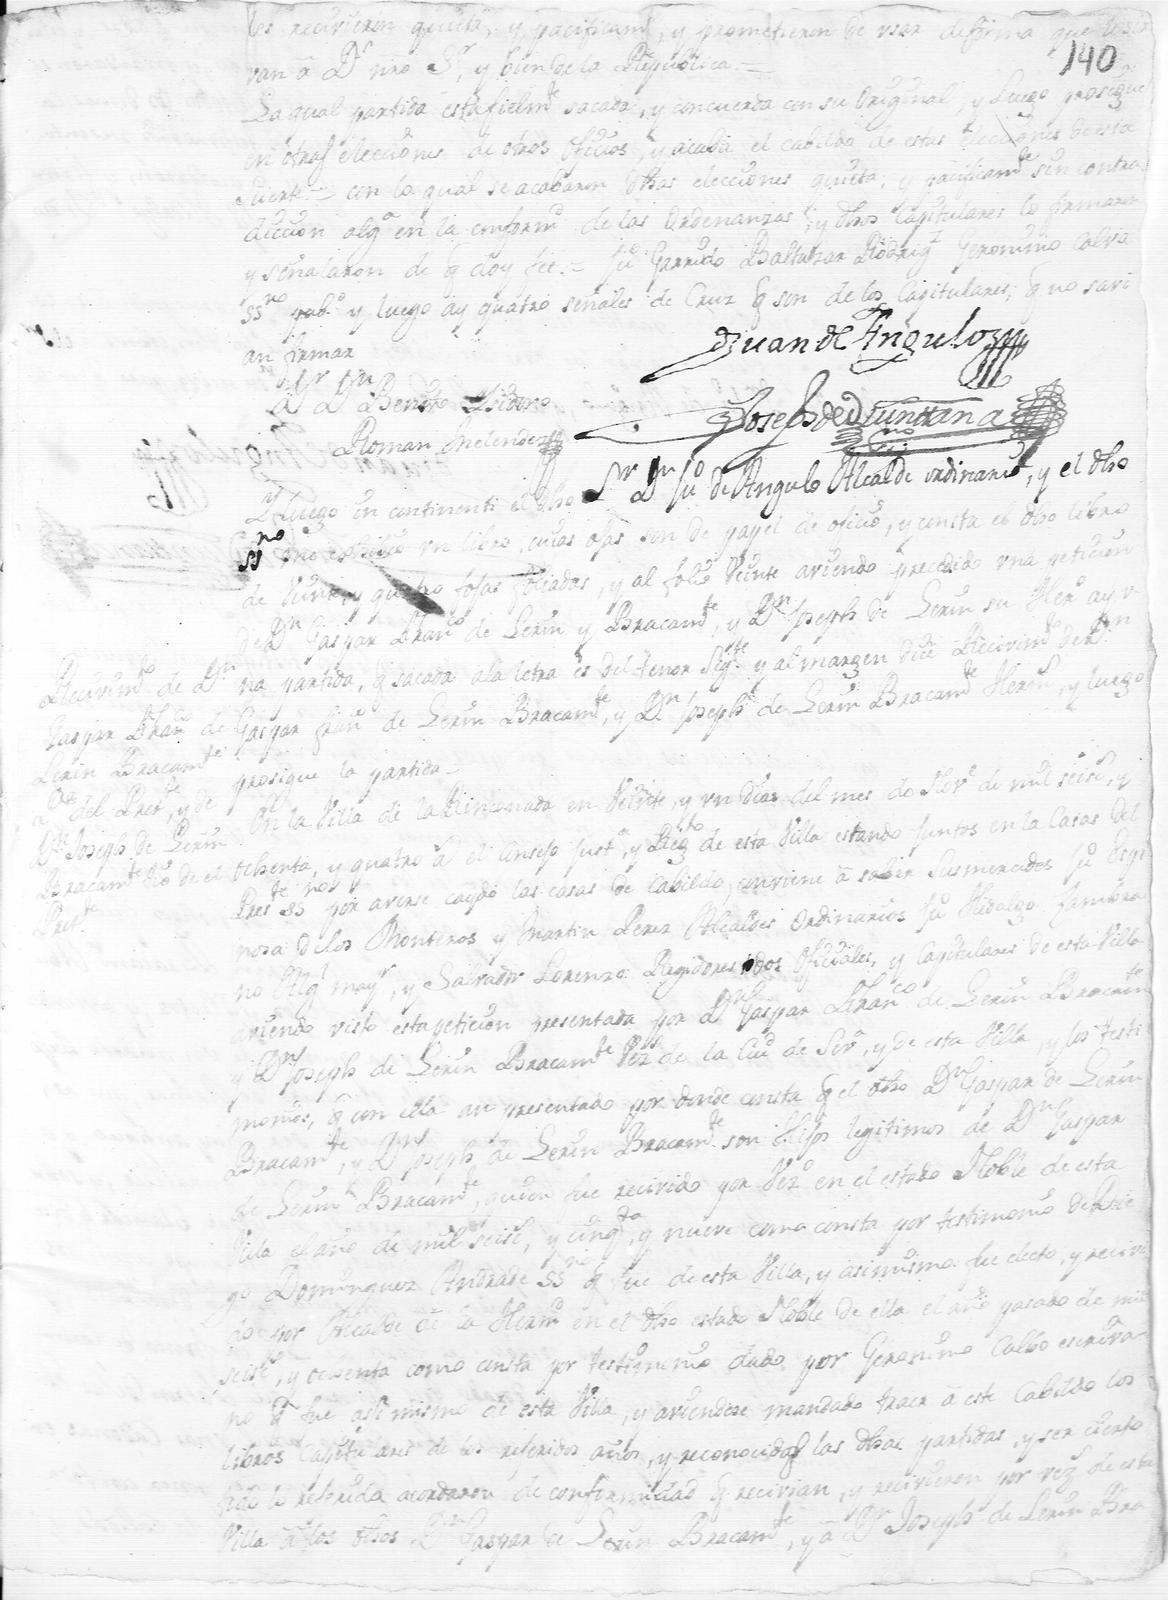 140
les recivieron quieta, y pacificam.te, y prometieron de usar de forma que
van â D.s nro S.r, y bien de la Republica =
La qual partida esta fielm.te sacada, y concuerda con su Original, y Luego prosigue
en otras elecciones de otros oficios, y acaba el cabildo de estas elecciones de esta
Suerte = con lo qual se acabaron dhas elecciones quieta, y pacificam.te sin contra
diccion alg.a en la conform.d de las ordenanzas, y dhos Capitulares lo firmaron
y señalaron de q doy fee = Ju.o Garrido Baltasar Rodrig.z Geronimo Calvo
ss.no pub.o y luego ay quatro señales de Cruz q son de los Capitulares, q no savi
an firmar
Juan de Angulo
D.r D.n Benito Isidoro
Roman Melendez
Joseph de Quintana
ss.no
Y luego in continenti el dho S.r D.n Ju.o de Angulo Alcalde ordinario, y el dho
ss.no me exhivio un libro, cuias ojas son de papel de oficio, y consta el dho libro
de Veinte y quatro fojas foliadas, y al folio Veinte aviendo precedido una peticion
de D.n Gaspar Fran.co de Lerin y Bracam.te, y D.n Joseph de Lerin su Her.o ay u
na partida, q sacada a la letra es del tenor Sig.te y al margen dice Recivim.to de D.n
Gaspar Fran.co de Lerin Bracam.te, y D.n Joseph de Lerin Bracam.te Herm.o, y luego
prosigue la partida =
Recivim.to de D.n
Gaspar Fran.co de
Lerin Bracam.te
del Pret.te, y de
D.n Joseph de Lerin
Bracam.te tio de el
Pret.te
En la Villa de la Rinconada en Veinte, y un dias del mes de Nov.e de mil seisc.s, y
ochenta, y quatro a.s el Consejo Just.a, y Reg.to de esta Villa estando Juntos en la Casas del
Pres.te ss.no por averse caydo las casas de Cabildo, conviene â saber Sus mercedes Ju.o Espi
nosa de los Monteros y Martin Perez Alcaldes ordinarios Ju.o Hidalgo Zambra
no Alg.l may.r, y Salvador Lorenzo Regidores todos oficiales, y Capitulares de esta Villa
aviendo visto esta peticion presentada por D.n Gaspar Fran.co de Lerin Bracam.te
y D.n Joseph de Lerin Bracam.te Vez.s de la Ciu.d de Sev.a, y de esta Villa, y los testi
monios, q con ella an presentado por donde consta q el dho D.n Gaspar de Lerin
Bracam.te, y D.n Joseph de Lerin Bracam.te son Hijos legitimos de D.n Gaspar
de Lerin Bracam.te, quien fue recivido por Vez.o en el estado Noble de esta
Villa el año de mil seisc.s, y cinq.ta, y nueve como consta por testimonio de Die
go Dominguez Andrade ss.no q fue de esta Villa, y asimismo fue electo, y recivi
do por Alcalde de la Herm.d en el dho estado Noble de ella el año pasado de mil
seisc.s, y ochenta como consta por testimonio dado por Geronimo Calbo escriva
no q fue asimismo de esta Villa, y aviendose mandado traer â este Cabildo los
libros Capitulares de los referidos años, y reconocidas las dhas partidas, y ser cierto
todo lo referido acordaron de conformidad q recivian, y recivieron por vez.s de esta
Villa â los dhos D.n Gaspar de Lerin Bracam.te, y â D.n Joseph de Lerin Bra